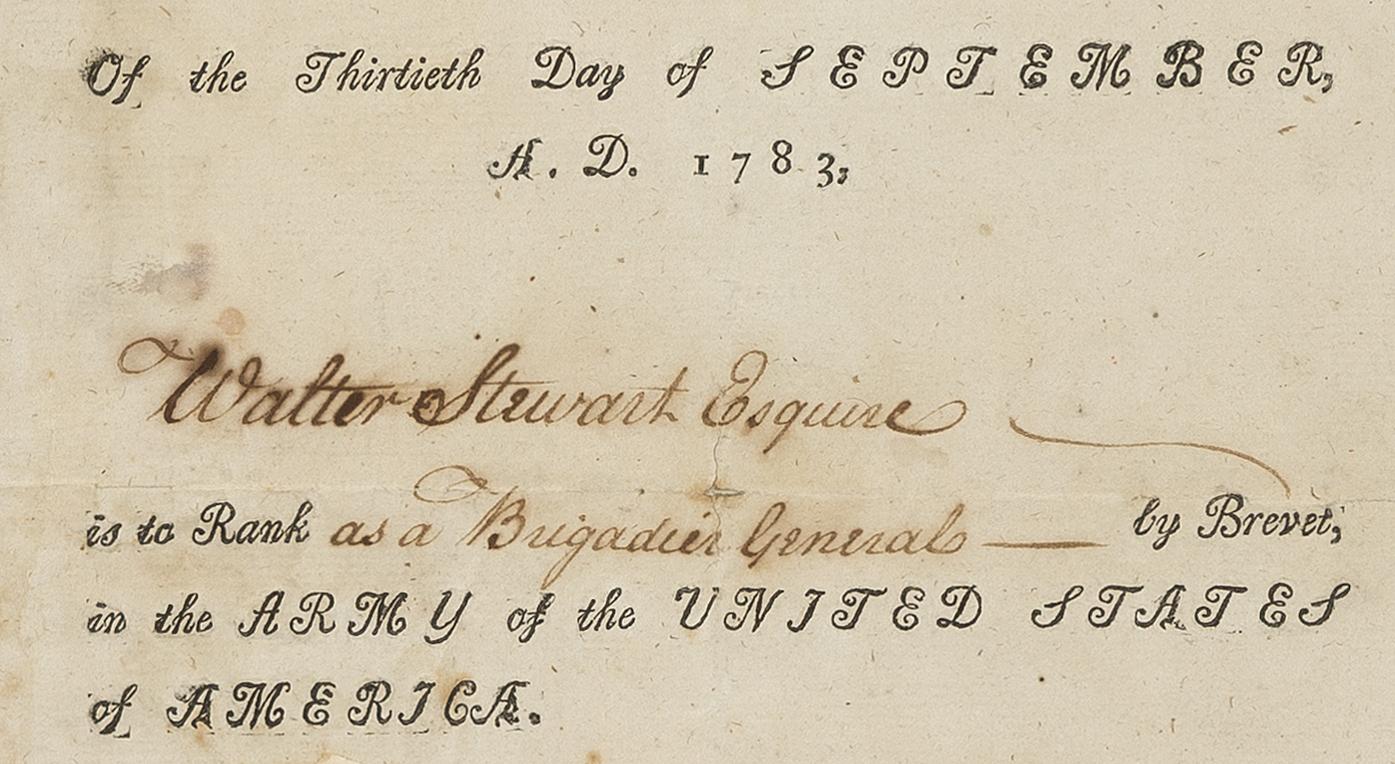 Of the Thirtieth Day of SEPTEMBER,
A. D. 1783,
Walter Stewart Esquire
is to Rank as a Brigadier General — by Brevet,
in the ARMY of the UNITED STATES
of AMERICA.